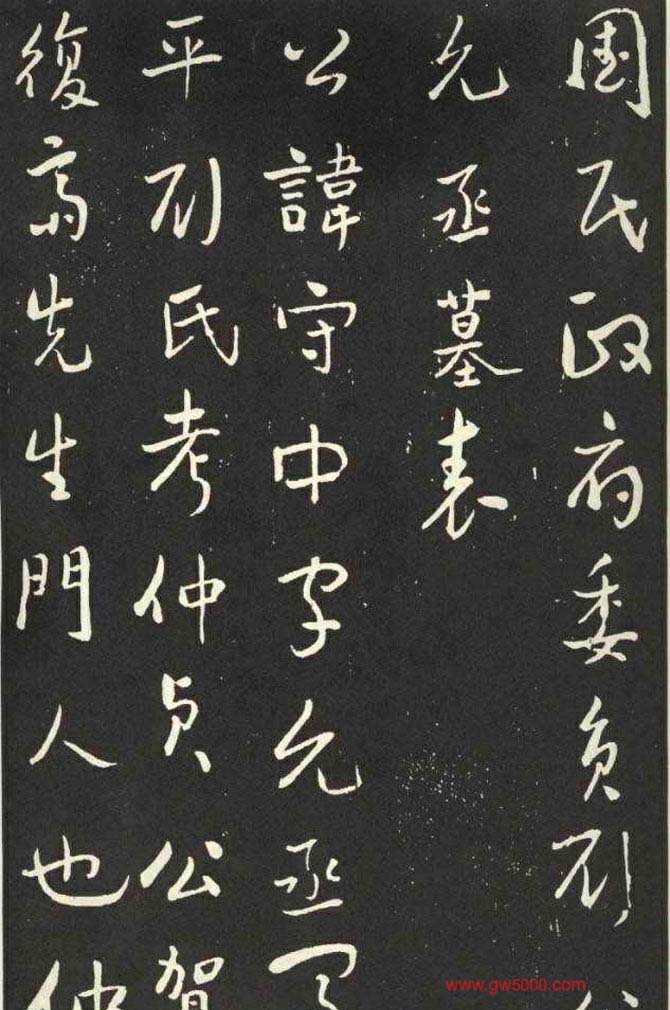 國民政府委員劉
允丞墓表
公諱守中字允丞富
平劉氏考仲貞公賀
復齋先生門人也仲
www.gw5000.com